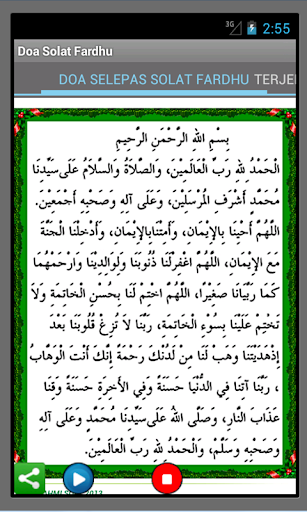 3G 2:55
Doa Solat Fardhu
DOA SELEPAS SOLAT FARDHU TERJE
بِسْمِ اللهِ الرَّحْمَنِ الرَّحِيمِ
الْحَمْدُ لِلَّهِ رَبِّ الْعَالَمِيْنَ، وَالصَّلَاةُ وَالسَّلَامُ عَلَى سَيِّدِنَا
مُحَمَّدٍ أَشْرَفِ الْمُرْسَلِيْنَ، وَعَلَى آلِهِ وَصَحْبِهِ أَجْمَعِيْنَ.
اللَّهُمَّ أَحْيِنَا بِالإِيْمَانِ، وَأَمِتْنَابِالإِيْمَانِ، وَأَدْخِلْنَا الْجَنَّةَ
مَعَ الإِيْمَانِ، اللَّهُمَّ اغْفِرْلَنَا ذُنُوبَنَا وَلِوَالِدِيْنَا وَارْحَمْهُمَا
كَمَا رَبَّيَانَا صَغِيْرًا، اللَّهُمَّ اخْتِمْ لَنَا بِحُسْنِ الْخَاتِمَةِ وَلَا
تَخْتِمْ عَلَيْنَا بِسُوْءِ الْخَاتِمَةِ، رَبَّنَا لَا تُزِغْ قُلُوْبَنَا بَعْدَ
إِذْهَدَيْتَنَا وَهَبْ لَنَا مِنْ لَدُنْكَ رَحْمَةً إِنَّكَ أَنْتَ الْوَهَّابُ
، رَبَّنَا آتِنَا فِي الدُّنْيَا حَسَنَةً وَفِي الآخِرَةِ حَسَنَةً وَقِنَا
عَذَابَ النَّارِ، وَصَلَّى اللهُ عَلَى سَيِّدِنَا مُحَمَّدٍ وَعَلَى آلِهِ
وَصَحْبِهِ وَسَلَّمَ، وَالْحَمْدُ لِلَّهِ رَبِّ الْعَالَمِيْنَ.
2013